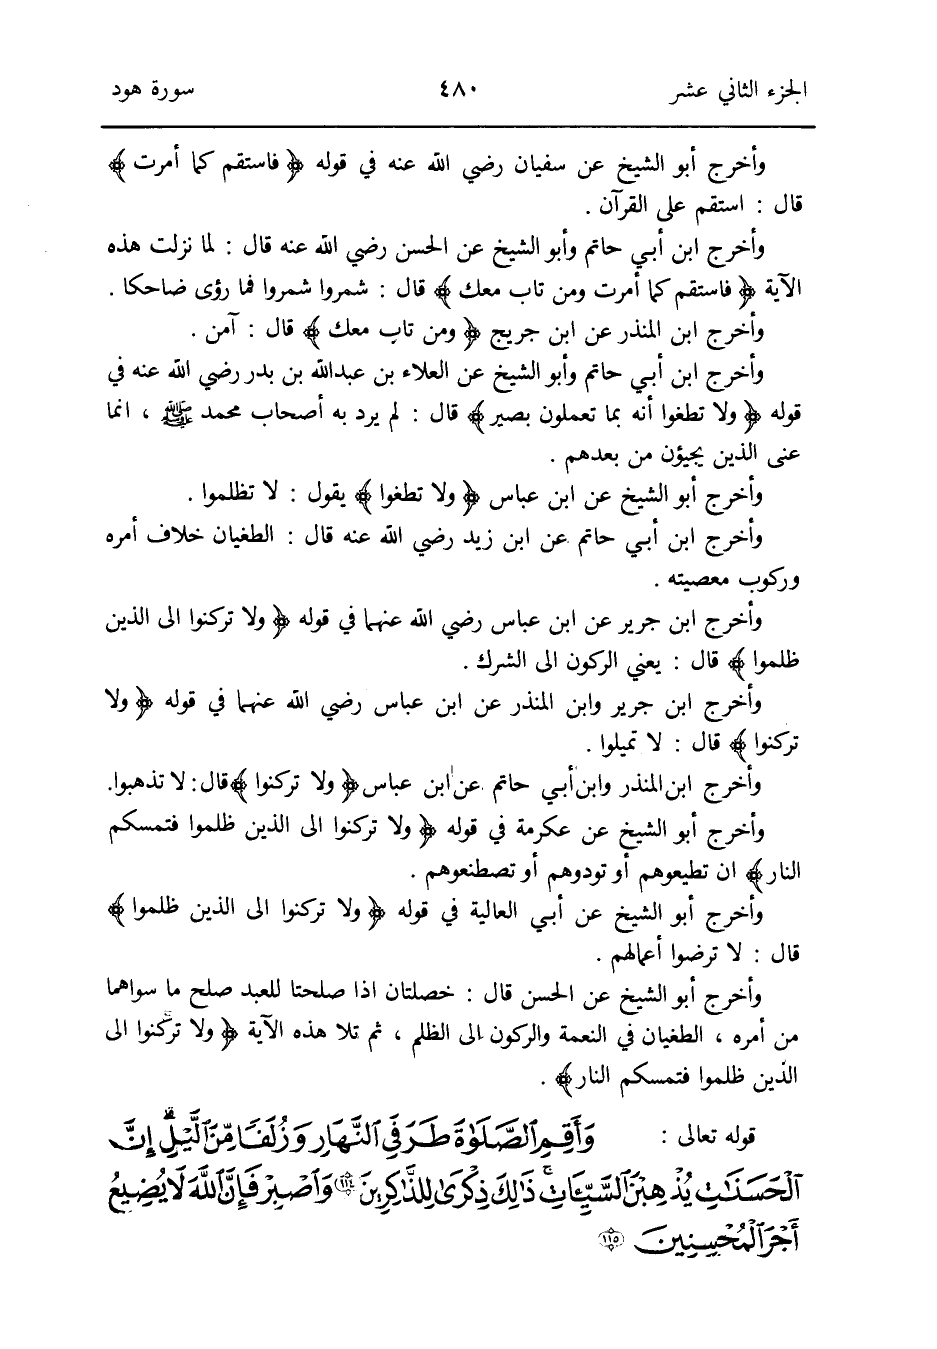 الجزء الثاني عشر ٤٨٠ سورة هود
وأخرج أبو الشيخ عن سفيان رضي الله عنه في قوله ﴿ فاستقم كما أمرت ﴾
قال : استقم على القرآن .
وأخرج ابن أبي حاتم وأبو الشيخ عن الحسن رضي الله عنه قال : لما نزلت هذه
الآية ﴿ فاستقم كما أمرت ومن تاب معك ﴾ قال : شمروا شمروا فما رؤى ضاحكا .
وأخرج ابن المنذر عن ابن جريج ﴿ ومن تاب معك ﴾ قال : آمن .
وأخرج ابن أبي حاتم وأبو الشيخ عن العلاء بن عبدالله بن بدر رضي الله عنه في
قوله ﴿ ولا تطغوا أنه بما تعملون بصير ﴾ قال : لم يرد به أصحاب محمد ﷺ ، انما
عنى الذين يجيؤن من بعدهم .
وأخرج أبو الشيخ عن ابن عباس ﴿ ولا تطغوا ﴾ يقول : لا تظلموا .
وأخرج ابن أبي حاتم عن ابن زيد رضي الله عنه قال : الطغيان خلاف أمره
وركوب معصيته .
وأخرج ابن جرير عن ابن عباس رضي الله عنهما في قوله ﴿ ولا تركنوا الى الذين
ظلموا ﴾ قال : يعني الركون الى الشرك .
وأخرج ابن جرير وابن المنذر عن ابن عباس رضي الله عنهما في قوله ﴿ ولا
تركنوا ﴾ قال : لا تميلوا .
وأخرج ابن المنذر وابن أبي حاتم عن ابن عباس ﴿ ولا تركنوا ﴾ قال : لا تذهبوا.
وأخرج أبو الشيخ عن عكرمة في قوله ﴿ ولا تركنوا الى الذين ظلموا فتمسكم
النار ﴾ ان تطيعوهم أو تودوهم أو تصطنعوهم .
وأخرج أبو الشيخ عن أبي العالية في قوله ﴿ ولا تركنوا الى الذين ظلموا ﴾
قال : لا ترضوا أعمالهم .
وأخرج أبو الشيخ عن الحسن قال : خصلتان اذا صلحتا للعبد صلح ما سواهما
من أمره ، الطغيان في النعمة والركون الى الظلم ، ثم تلا هذه الآية ﴿ ولا تركنوا الى
الذين ظلموا فتمسكم النار ﴾ .
قوله تعالى : وَأَقِمِ ٱلصَّلَوٰةَ طَرَفَىِ ٱلنَّهَارِ وَزُلَفًا مِّنَ ٱلَّيْلِ ۚ إِنَّ
ٱلْحَسَنَٰتِ يُذْهِبْنَ ٱلسَّيِّـَٔاتِ ۚ ذَٰلِكَ ذِكْرَىٰ لِلذَّٰكِرِينَ ١١٤ وَٱصْبِرْ فَإِنَّ ٱللَّهَ لَا يُضِيعُ
أَجْرَ ٱلْمُحْسِنِينَ ١١٥